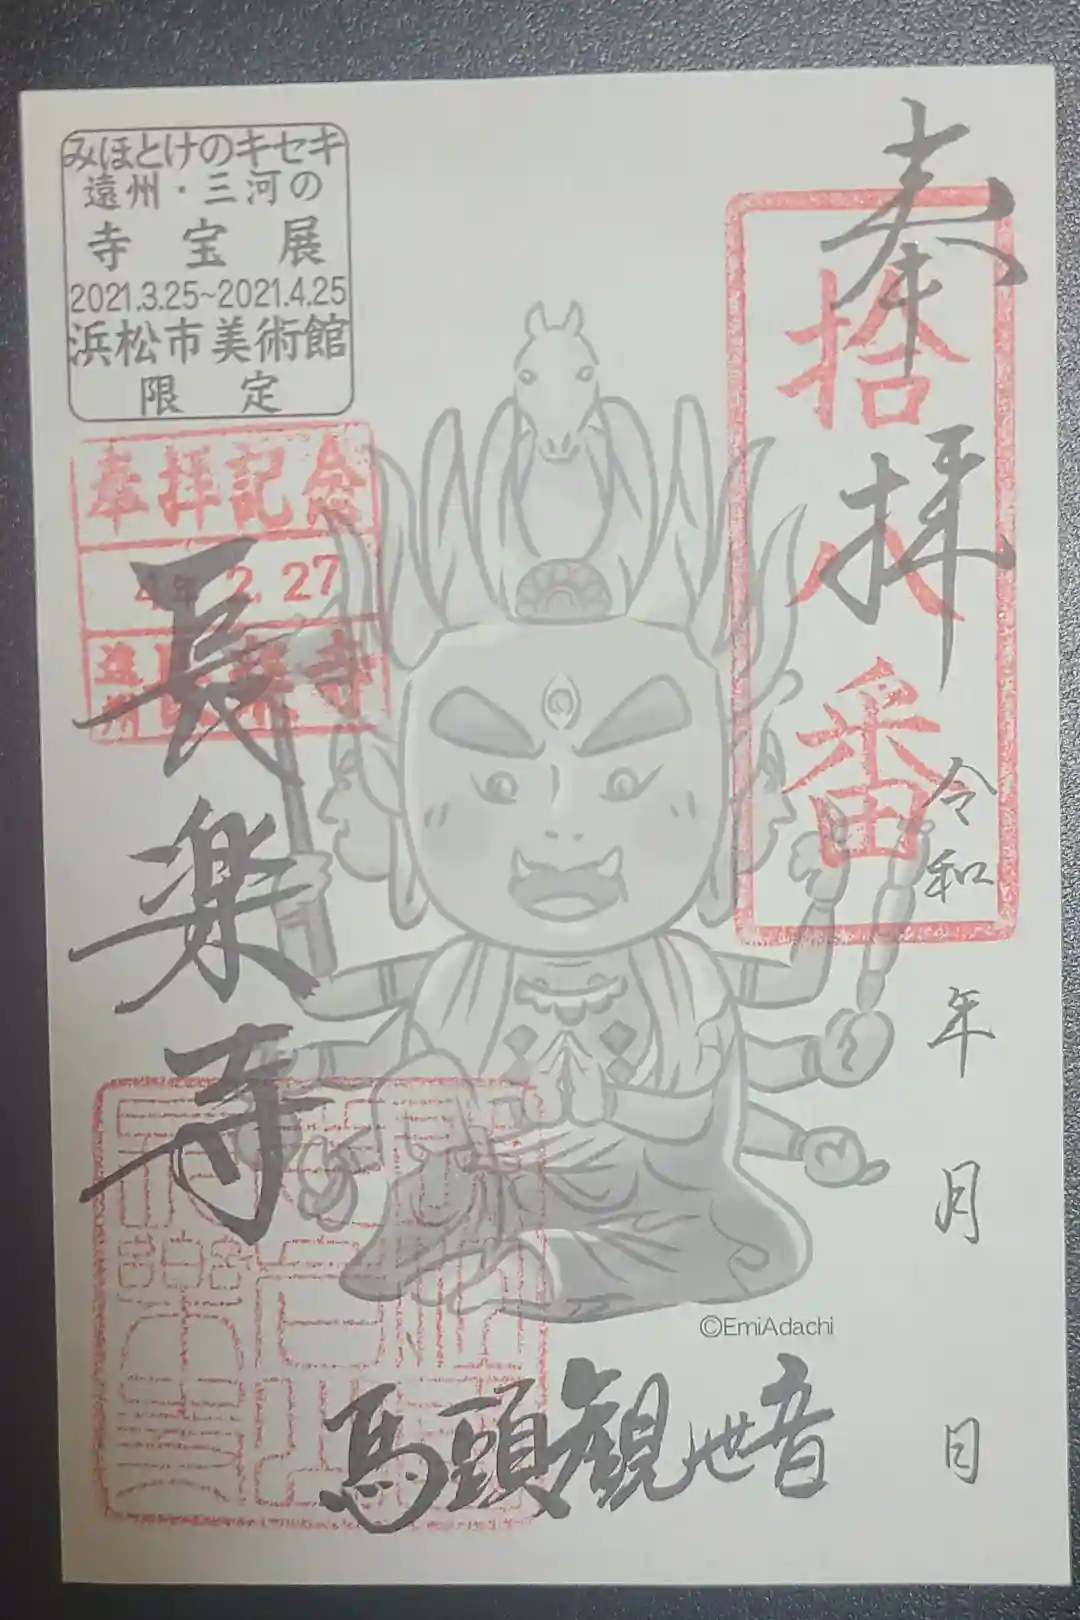 奉拝
拾八番
令和 年 月 日
みほとけのキセキ
遠州・三河の
寺宝展
2021.3.25~2021.4.25
浜松市美術館
限定
奉拝記念
2.27
長楽寺
©EmiAdachi
馬頭観世音